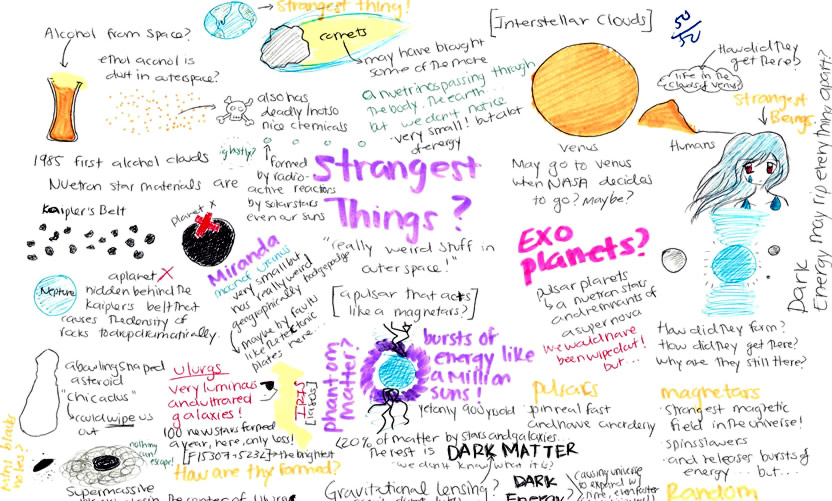 Strangest thing!
Alcohol from space?
ethol acohol is
dust in outerspace?
also has
deadly/notso
nice chemicals
1985 first alcohol clouds
comets
may have brought
some of the more
[Interstellar Clouds]
50/50
How did they
get there?
life in the
clouds of venus
Strangest
Beings
Humans
Venus
May go to venus
when NASA decides
to go? Maybe?
a nuetrinos passing through
the body... the earth...
but we don't notice
very small! but alot
of energy
ighostly?
formed
by radio-
active reactors
by solar stars
even our suns
Nuetron star materials are
Strangest
Things?
"really weird stuff in
outerspace!"
Kaipler's Belt
Planet X
Neptune
a planet X
hidden behind the
Kaipler's belt that
causes the density of
rocks to drop dramatically.
Miranda
moon of uranus
very small but
has really weird
geographically hodgepodge
maybe by faults
like the tectonic
plates here...
[a pulsar that acts
like a magnetars?]
Exo
planets?
pulsar planets
a nuetron stars
and remnants of
a supernova
we would have
been wiped out!
but...
Dark
Energy may rip everything apart?
How did they form?
How did they get there?
Why are they still there?
a bowling shaped
asteroid
"chicadus"
could wipe us
out
ulurgs
very luminous
and ultrared
galaxies!
100 new stars formed
a year, here, only less!
[F15307+5232] → the brightest
How are thy formed?
IRIS
[labels]
phantom
matter?
bursts of
energy like
a Million
suns!
yet only 900 yr old
pulsars
spin real fast
and have an orderly
magnetars
strongest magnetic
field in the universe!
spins slowers
and releases bursts of
energy... but...
mini blacks
holes?
nothing
can
escape!
Supermassive
<20% of matter by stars and galaxies.
the rest is DARK MATTER
we don't know what it is?
Gravitational lensing?
DARK
Energy
causing universe
to expand w/
time, even faster
Random